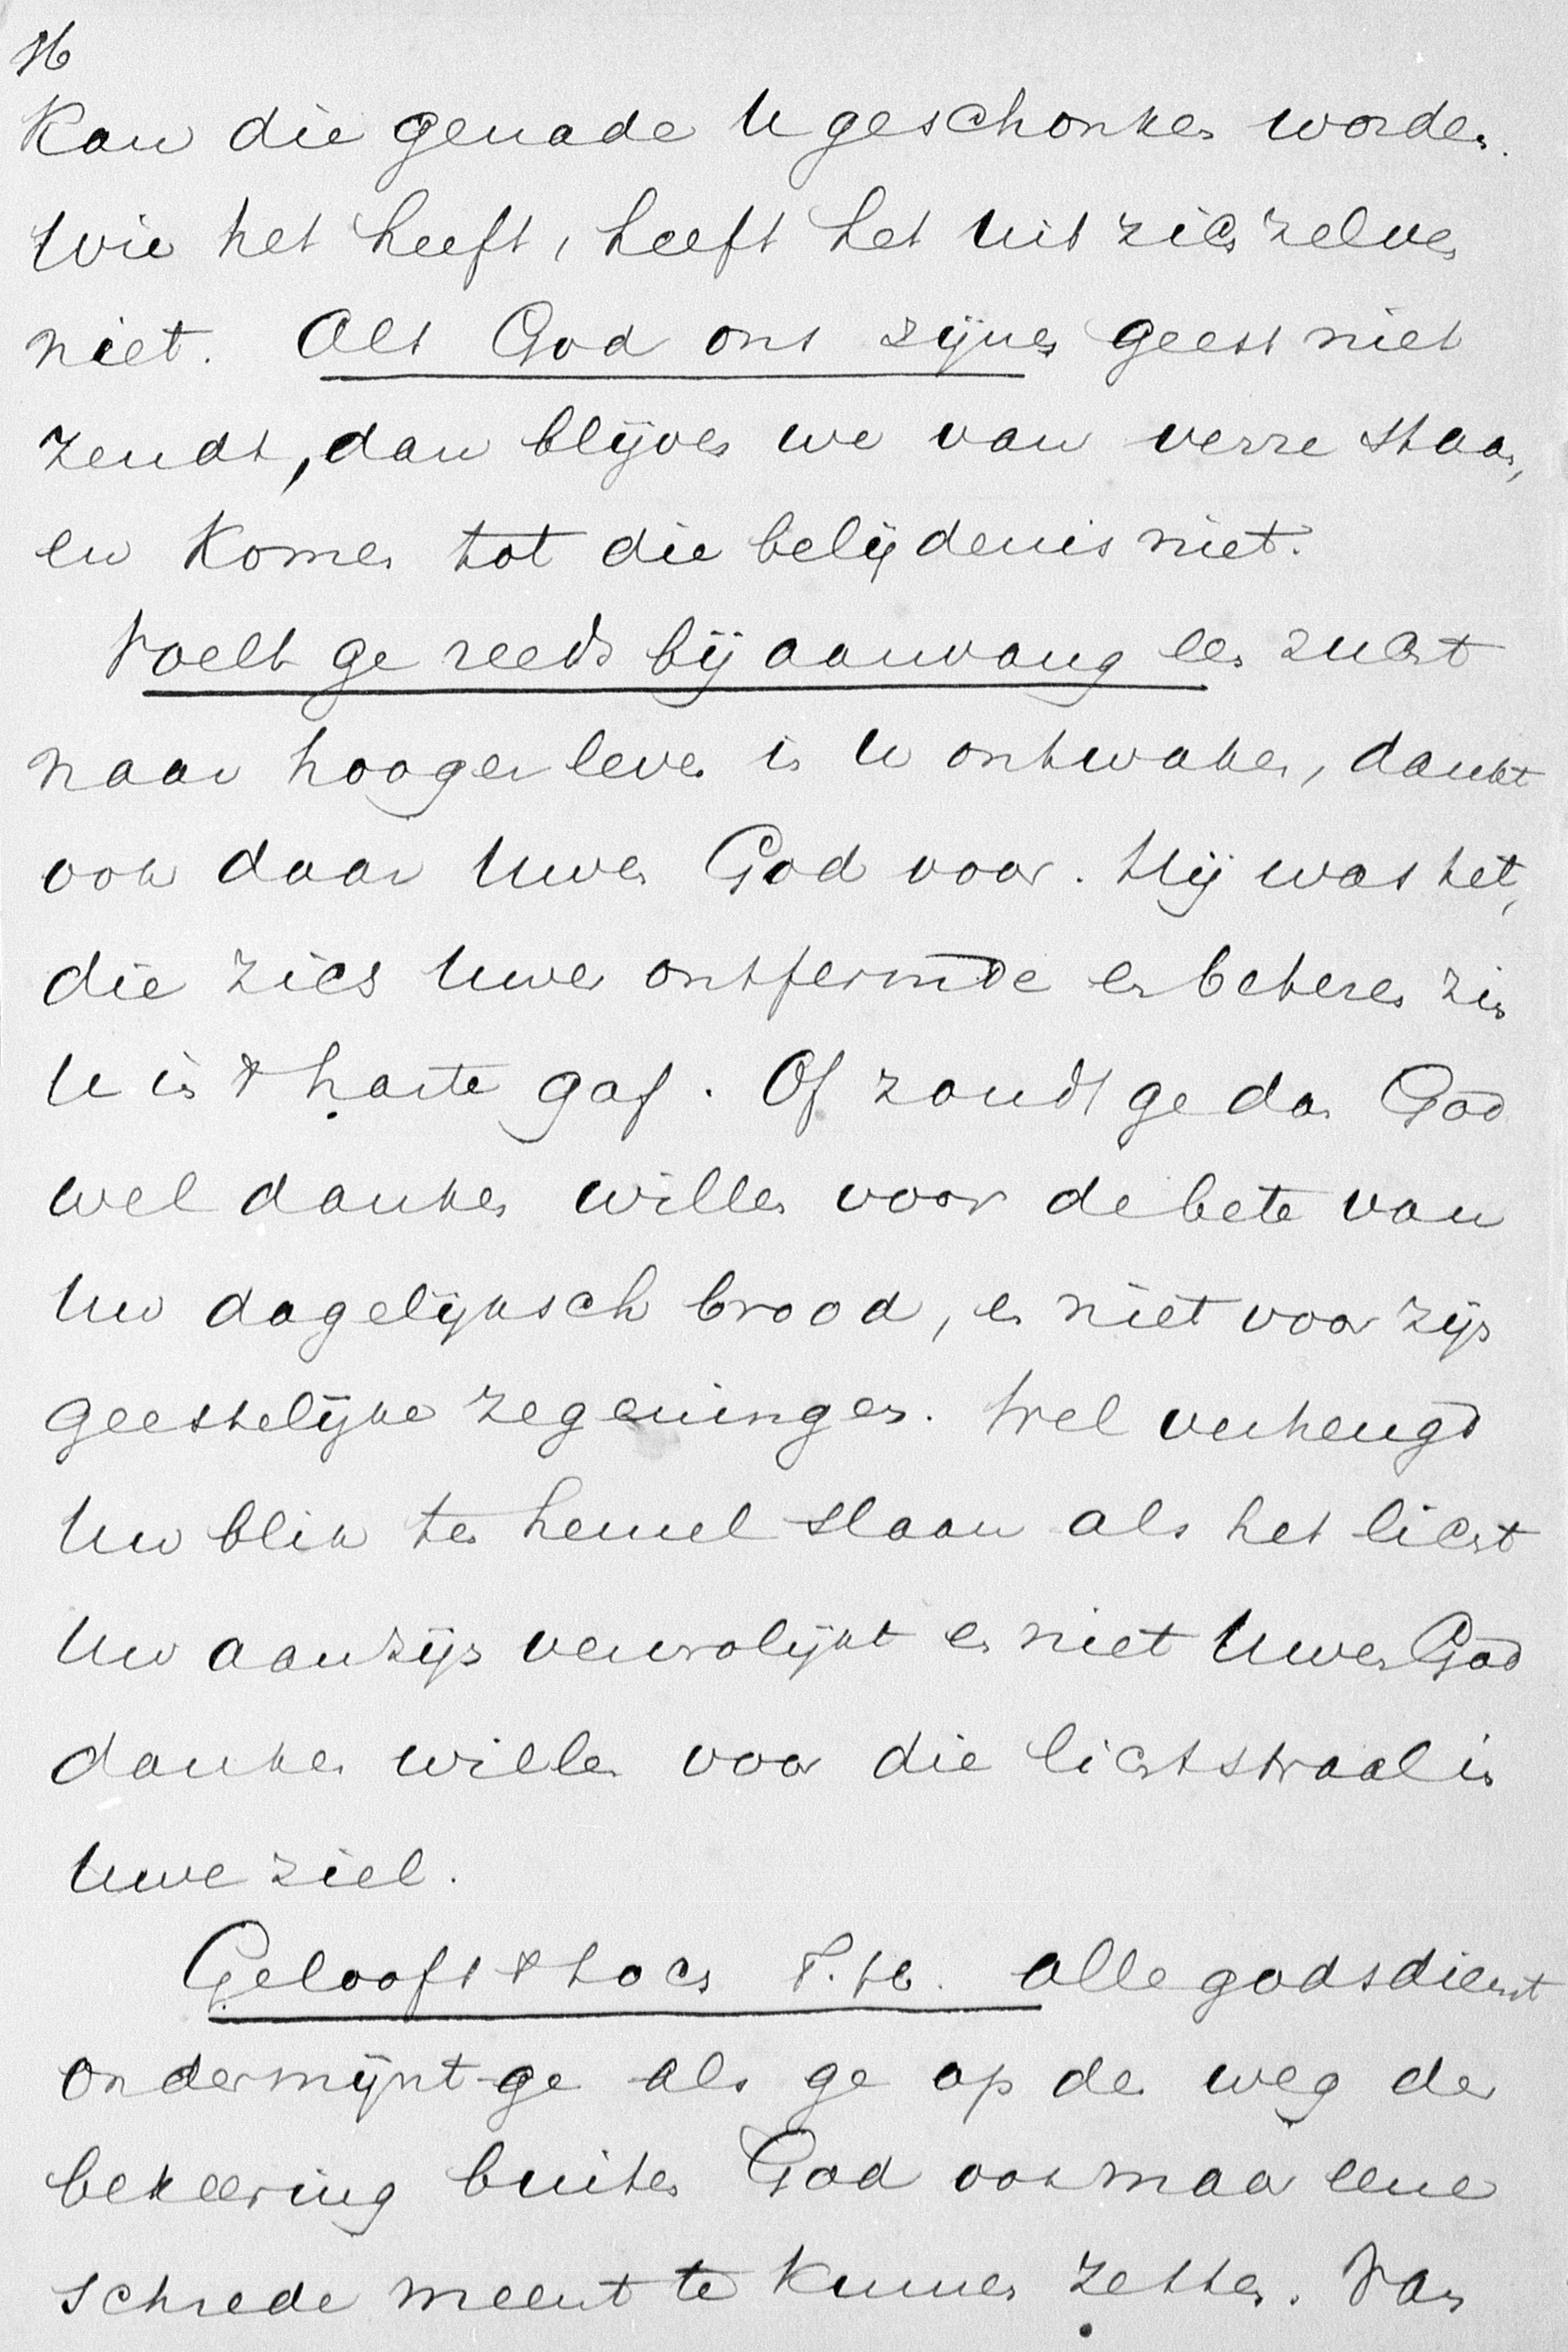 16
Kan die genade U geschonken worden.
Wie het heeft, heeft het uit zich zelven
niet. Als God ons zijnen geest niet
zendt, dan blijven we van verre staan,
en komen tot die belijdenis niet.
Voelt ge reeds bij aanvang een zucht
naar hooger leven in U ontwaken, dankt
ook daar Uwen God voor. Hij was het,
die zich Uwer ontfermde en beteren zin
U in 't harte gaf. Of zoudt ge dan God
wel danken willen voor de bete van
Uw dagelijksch brood, en niet voor zijn
geestelijke zegeningen. Wel verheugd
Uw blik ten hemel slaan als het licht
Uw aanzijn vervrolijkt en niet Uwen God
danken willen voor die lichtstraal in
Uwe ziel.
Gelooft 't toch T. H. alle godsdienst
ondermijnt ge als ge op den weg der
bekeering buiten God ook maar eene
schrede meent te kunnen zetten. Van